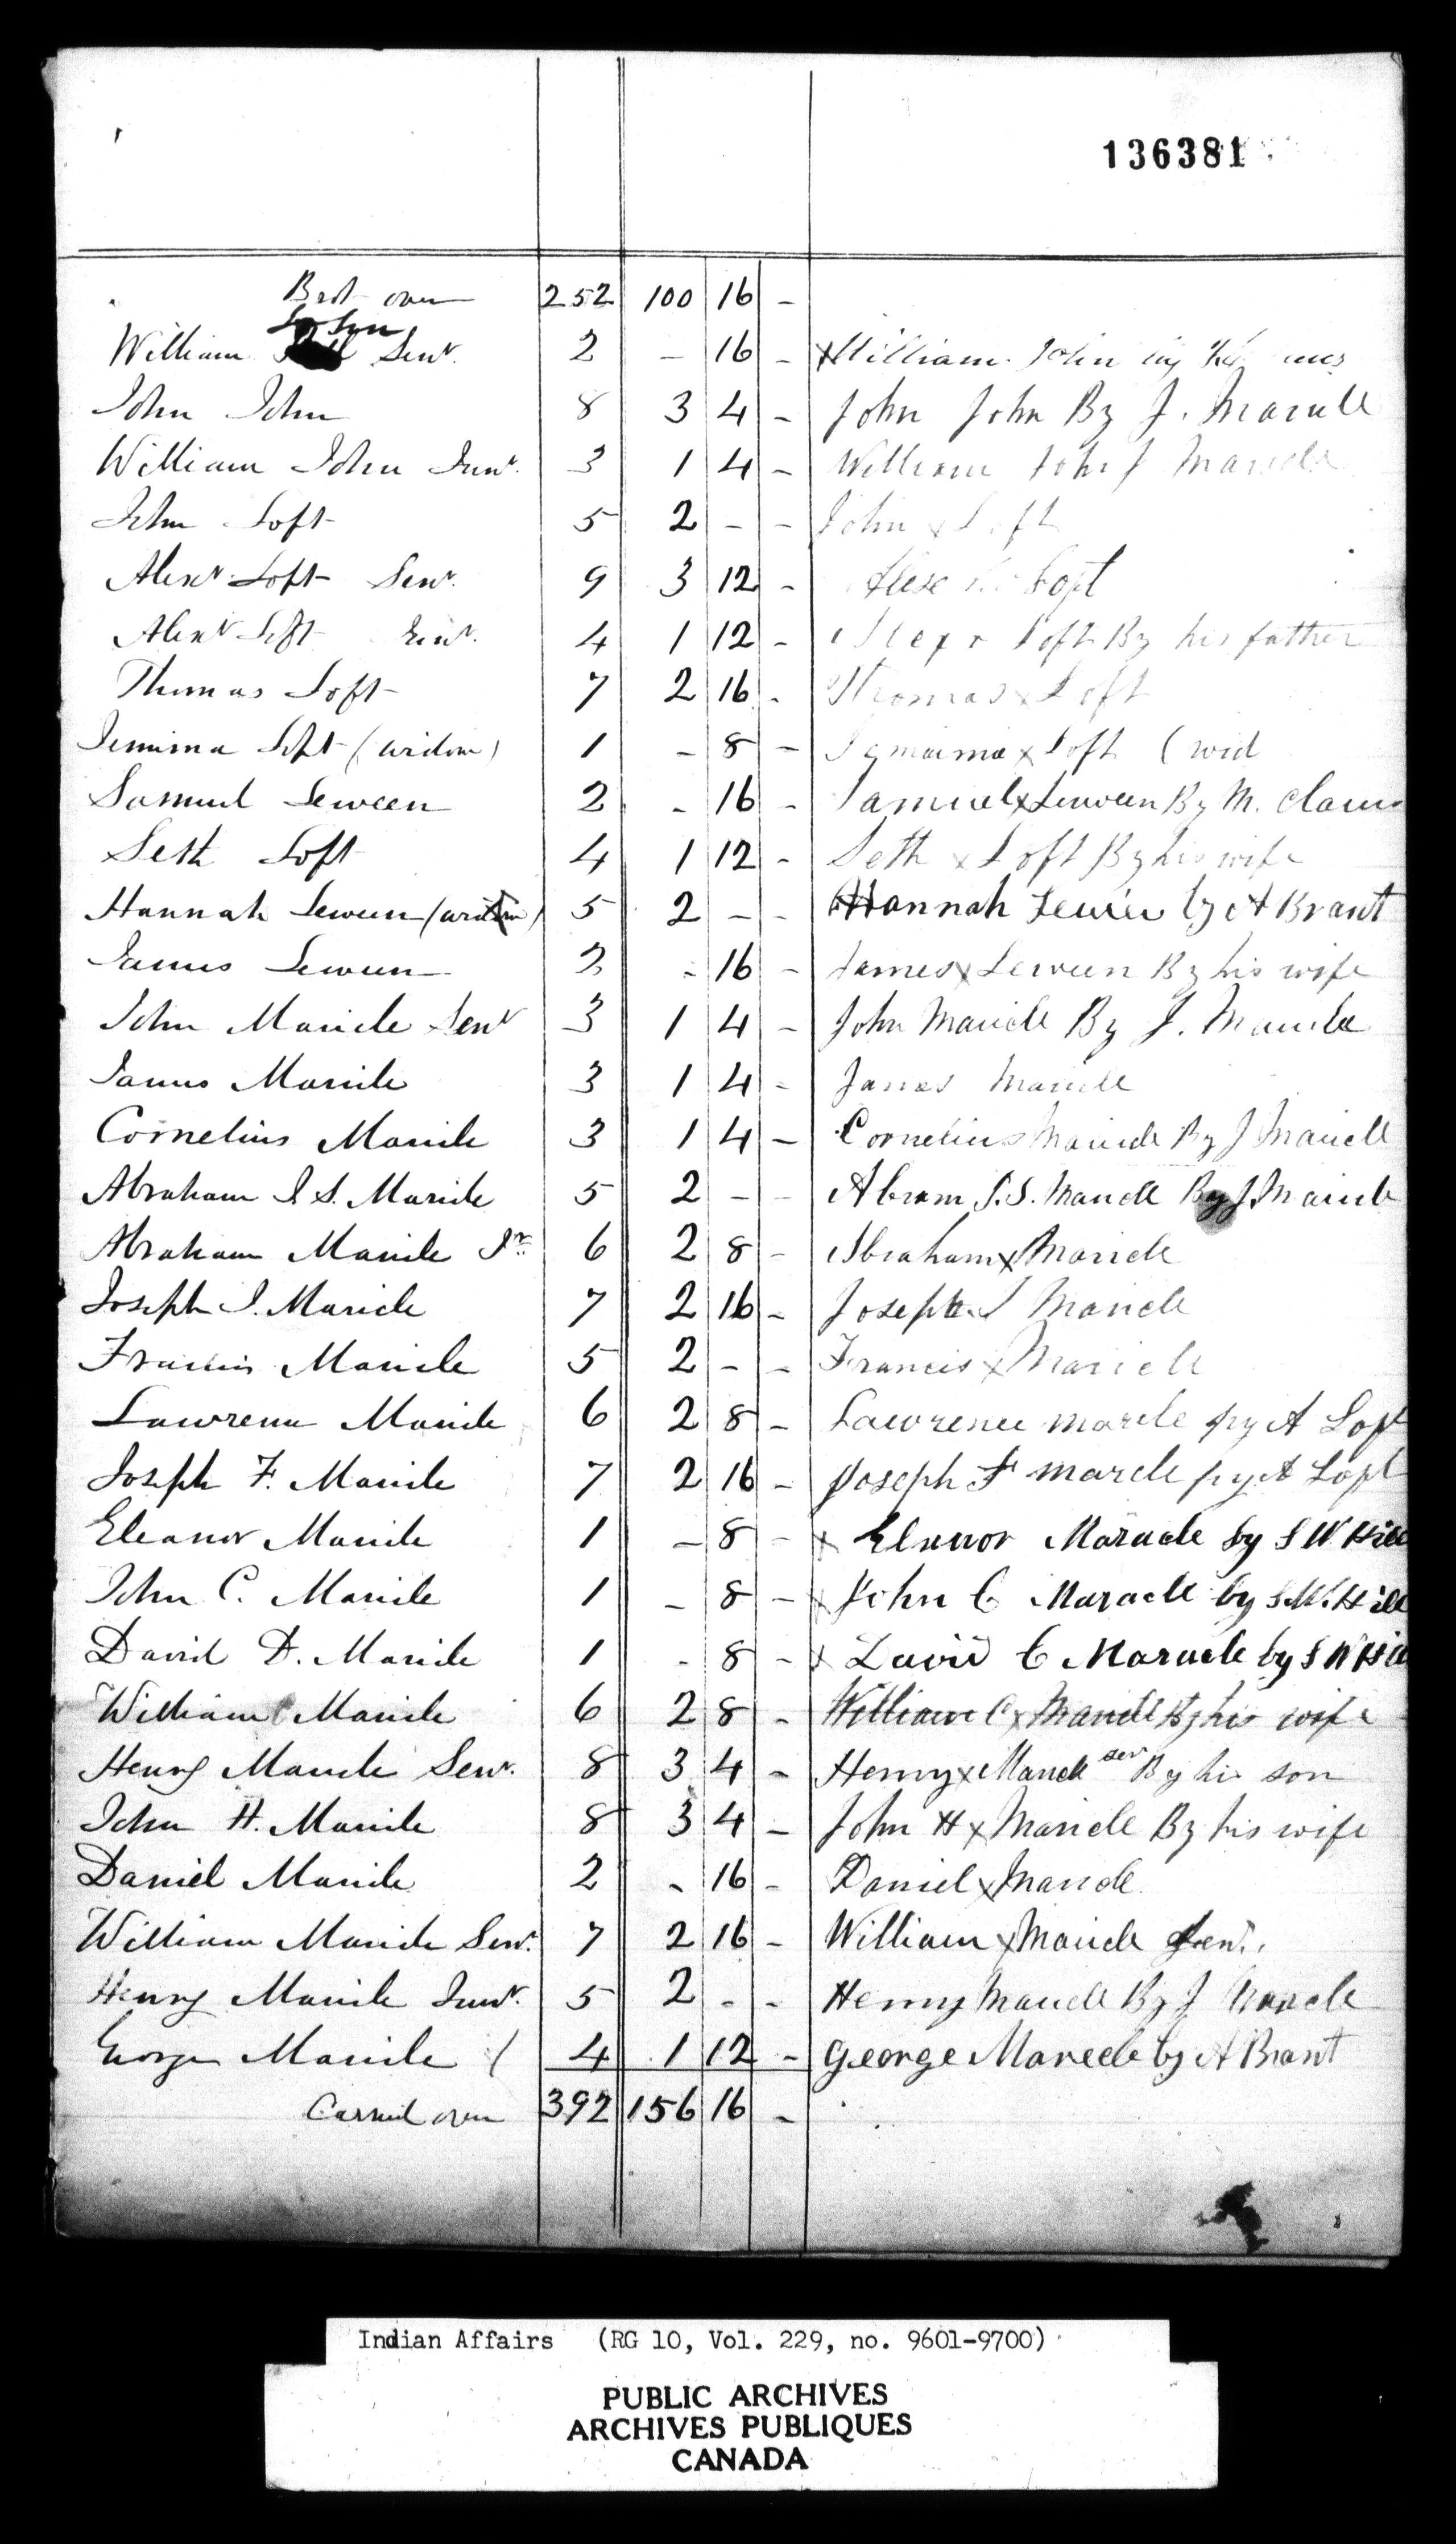 136381
Brot over 252 100 16 -
William Senr. 2 - 16 - x William John
John John 8 3 4 - John John By J. Maricle
William John Junr. 3 1 4 - William John J Maricle
John Loft 5 2 - - John x Loft
Alexr Loft Senr. 9 3 12 - Loft
Alexr Loft Junr. 4 1 12 - Alexr Loft By his father
Thomas Loft 7 2 16 - Thomas x Loft
Jemima Loft (widow) 1 - 8 - Jamaima x Loft (wid
Samuel Leween 2 - 16 - Samuel x Leween By M. Claus
Seth Loft 4 1 12 - Seth x Loft By his wife
Hannah Leween (widow) 5 2 - - Hannah Lewin by A Brant
James Leween 2 - 16 - James x Leween By his wife
John Maricle Senr 3 1 4 - John Maricle By J. Maricle
James Maricle 3 1 4 - James Maricle
Cornelius Maricle 3 1 4 - Cornelius Maricle By J Maricle
Abraham I. S. Maricle 5 2 - - Abram I. S. Maricle By J. Maricle
Abraham Maricle Jr 6 2 8 - Abraham x Maricle
Joseph I. Maricle 7 2 16 - Joseph I Maricle
Francis Maricle 5 2 - - Francis x Maricle
Lawrence Maricle 6 2 8 - Lawrence marcle py A Loft
Joseph F. Maricle 7 2 16 - Joseph F marcle py A Loft
Eleanor Maricle 1 - 8 - x Elenor Maracle by S W Hill
John C. Maricle 1 - 8 - x John C Maracle by S. W. Hill
David D. Maricle 1 - 8 - x David C Maracle by S W Hill
William C Maricle 6 2 8 - William C x Maricle By his wife
Henry Maricle Senr. 8 3 4 - Henry x Maricle senr By his son
John H. Maricle 8 3 4 - John H x Maricle By his wife
Daniel Maricle 2 - 16 - Daniel x Maricle
William Maricle Senr. 7 2 16 - William x Maricle Senr.
Henry Maricle Junr. 5 2 - - Henry Maricle By J Maricle
George Maricle 4 1 12 - George Marecle by A Brant
Carried over 392 156 16 -
Indian Affairs (RG 10, Vol. 229, no. 9601-9700)
PUBLIC ARCHIVES
ARCHIVES PUBLIQUES
CANADA